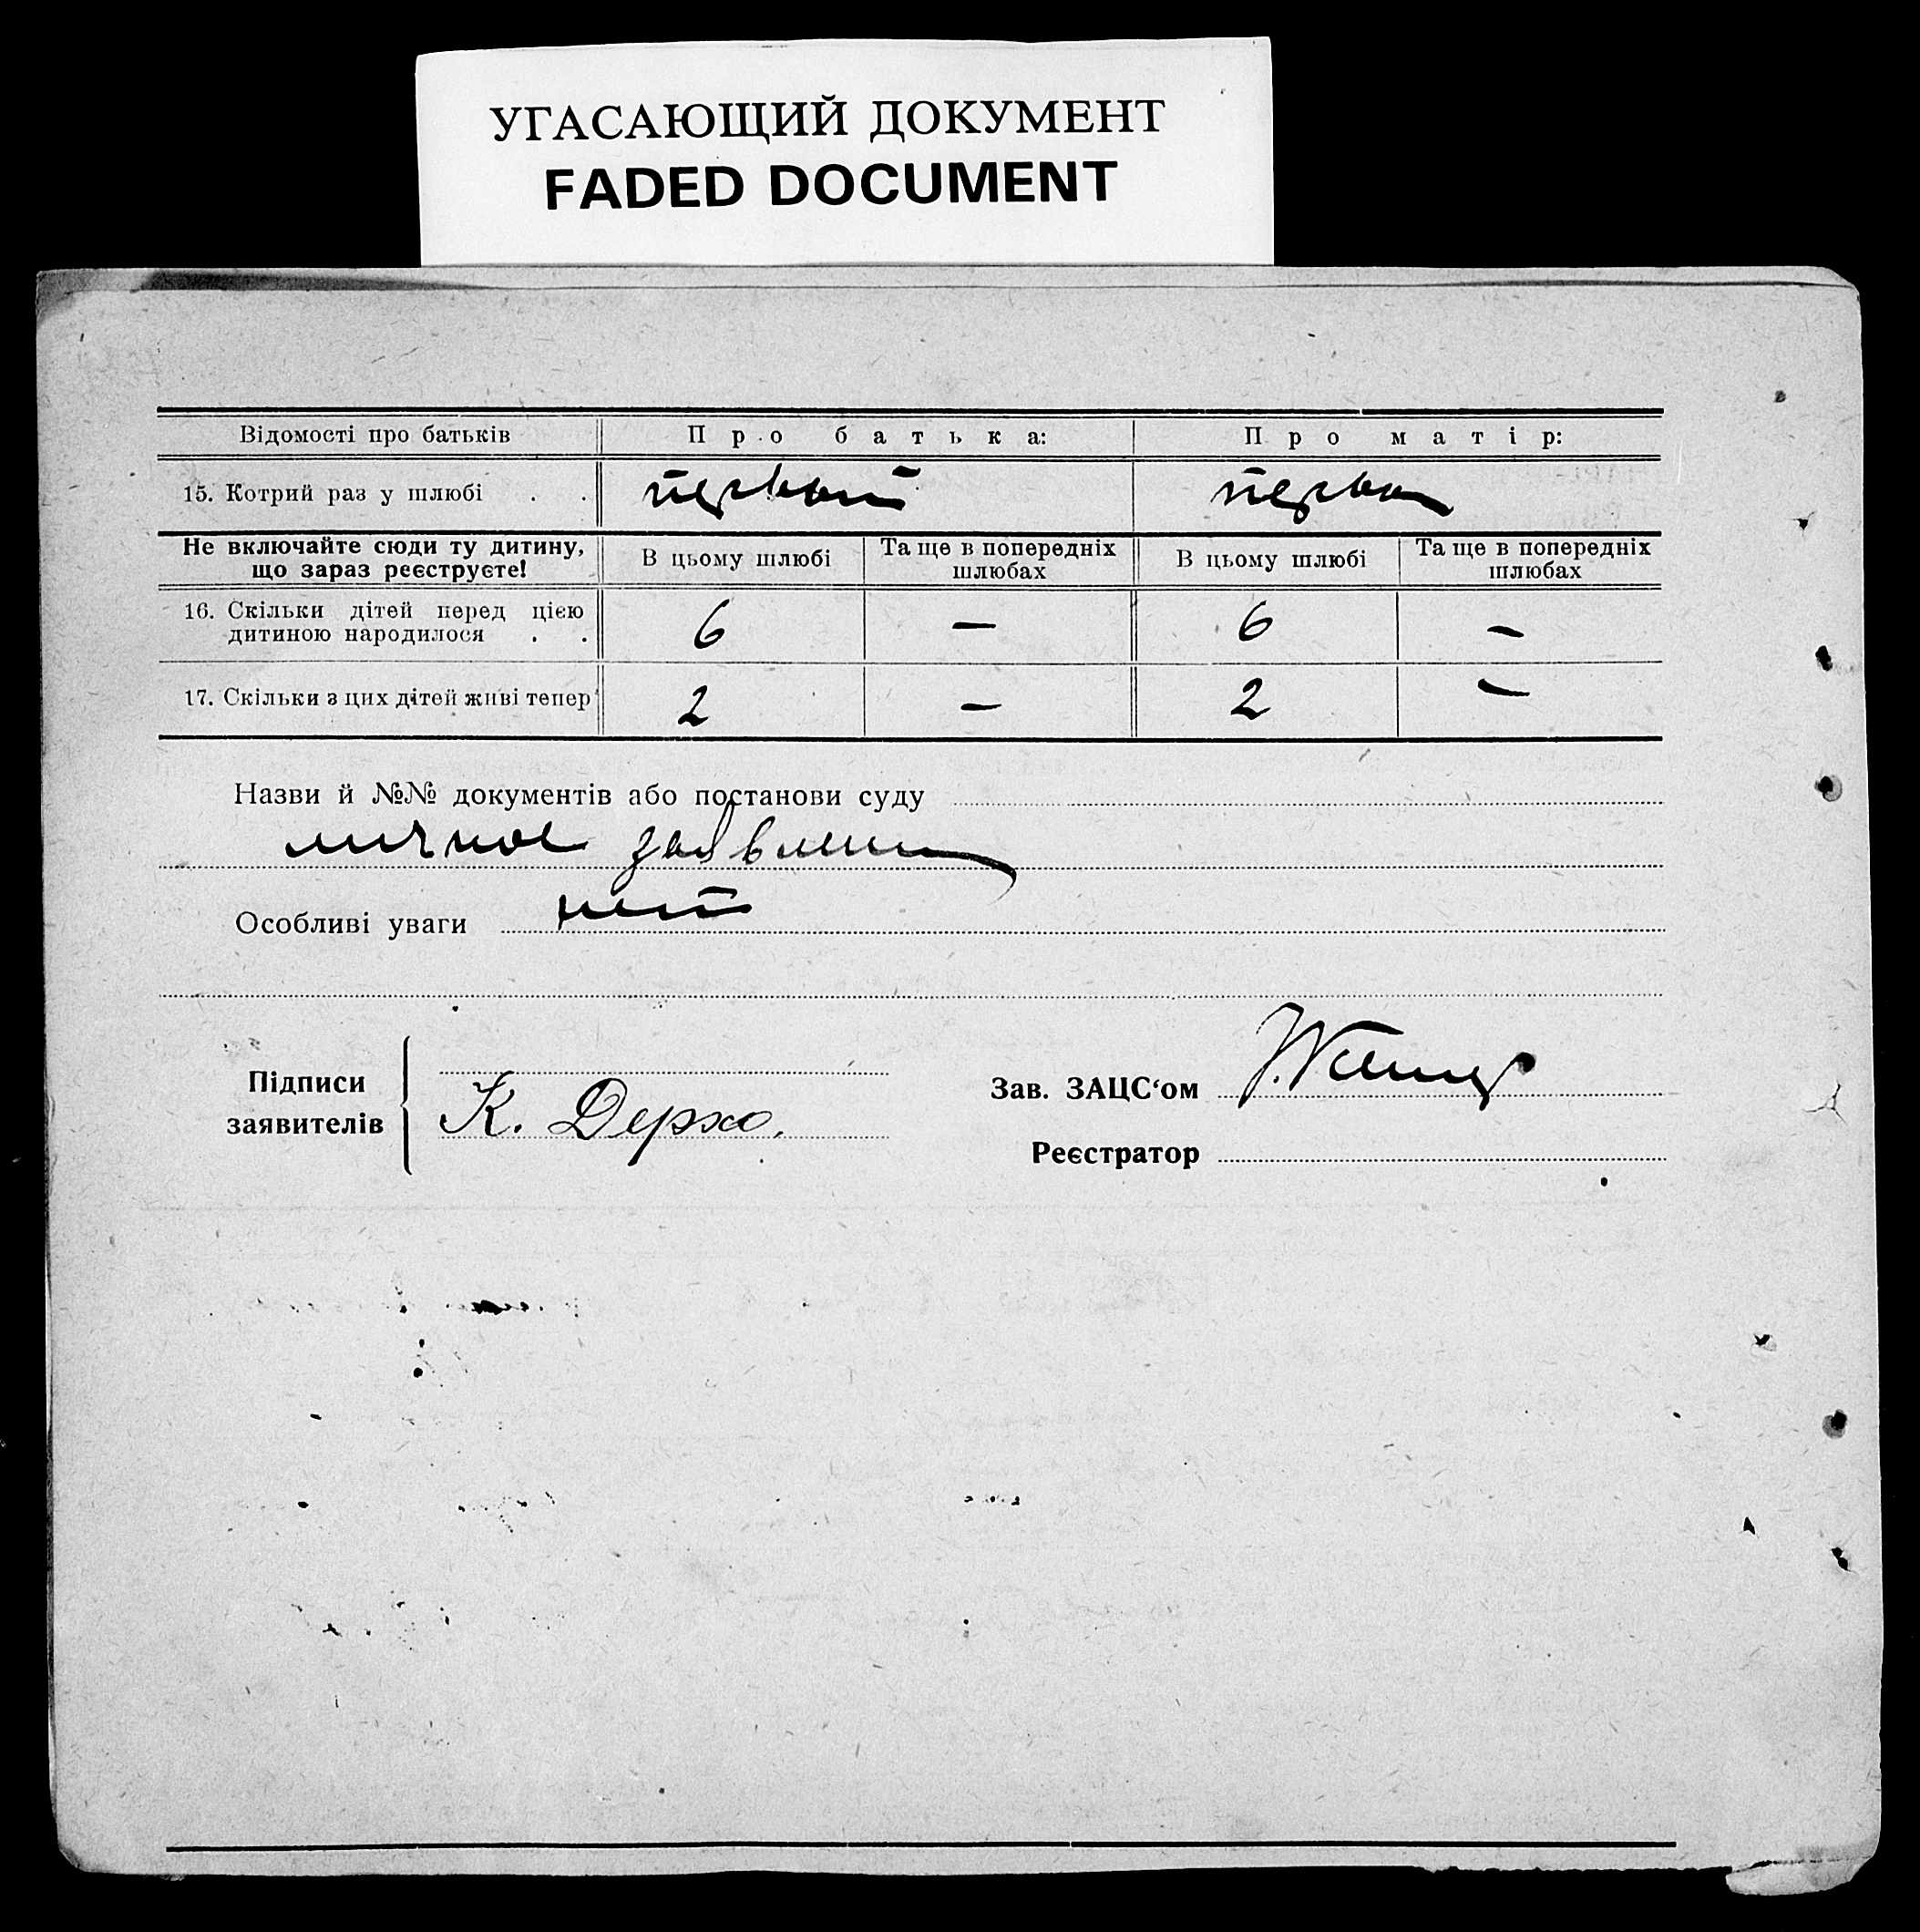 УГАСАЮЩИЙ ДОКУМЕНТ
FADED DOCUMENT
Відомості про батьків Про батька: Про матір:
15. Котрий раз у шлюбі . . первый первый
Не включайте сюди ту дитину, що зараз реєструєте! В цьому шлюбі Та ще в попередніх шлюбах В цьому шлюбі Та ще в попередніх шлюбах
16. Скільки дітей перед цією
дитиною народилося . . 6 — 6 —
17. Скільки з цих дітей живі тепер 2 — 2 —
Назви й №№ документів або постанови суду
личное заявление
Особливі уваги нет
Підписи
заявителів
К. Дерхо.
Зав. ЗАЦС‘ом
Реєстратор